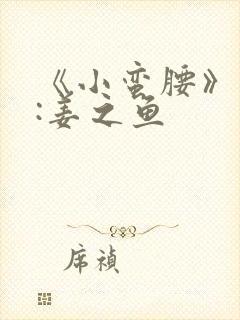 《小蛮腰》
:姜之鱼
席祯